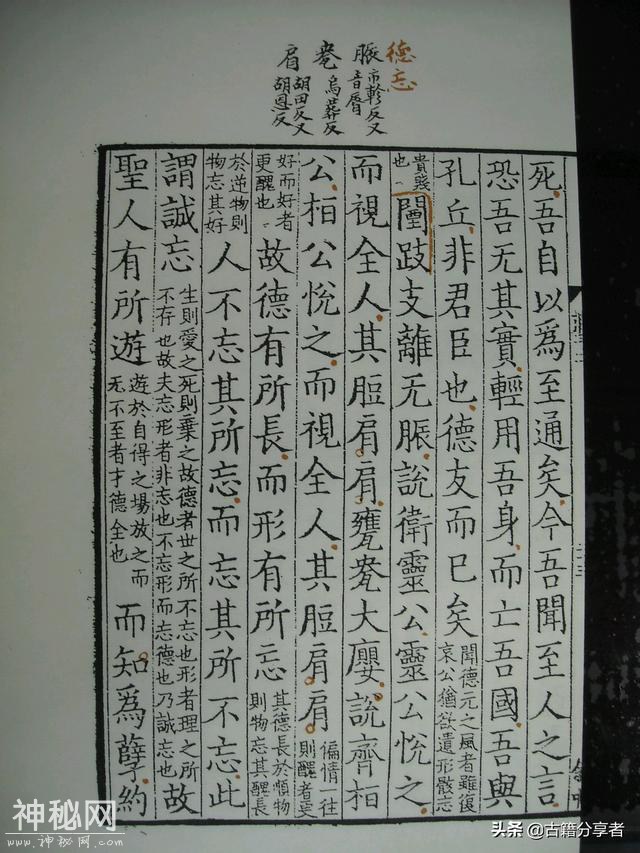 德忘
脤市軫反又
音脣
㼜烏葬反
肩胡田反又
胡恩反
死吾自以爲至通矣今吾聞至人之言
恐吾无其實輕用吾身而亡吾國吾與
孔丘非君臣也德友而已矣聞德充之風者雖復哀公猶欲遺形骸忘
貴賤也闉跂支離无脤說衛靈公靈公悅之
而視全人其脰肩肩甕㼜大癭說齊桓
公桓公悅之而視全人其脰肩肩偏情一往則醜者更
好而好者更醜也故德有所長而形有所忘其德長於順物則物忘其醜長
於逆物則物忘其好人不忘其所忘而忘其所不忘此
謂誠忘生則愛之死則棄之故德者世之所不忘也形者理之所不存也故夫忘形者非忘也不忘形而忘德也乃誠忘也故
聖人有所遊遊於自得之場放之而无不至者才德全也而知爲孽約
神秘网
www.shenmiwang.com
头条 @古籍分享者